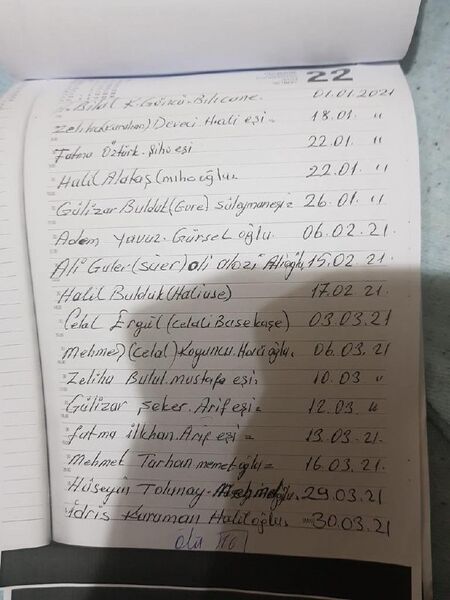 22
Bilal K.Güncü. Bilicane. 01.01.2021
Zeliha(Karahan) Deveci Halil eşi = 18.01 "
Fatma Öztürk. Şıho eşi 22.01 "
Halil Alataş (mihooğlu. 22.01 "
Gülizar Bulduk (Gure) Süleymaneşi= 26.01 "
Adem Yavuz. Gürsel oğlu. 06.02.21.
Ali Güler (süer) Alioğlu 15.02 21.
Halil Bulduk(Haliuse) 17.02 21.
Celal Ergül (celali Basekaşe) 03.03.21
Mehmet (celal) Koyuncu. Hacıoğlu. 06.03.21
Zeliha Bulut. Mustafa eşi. 10.03 "
Gülizar Şeker. Arif eşi = 12.03. "
Fatma ilkhan. Arif eşi = 13.03.21.
Mehmet Tarhan. memetoğlu = 16.03.21
Hüseyin Tolunay. 29.03.21
İdris Karaman Haliloğlu. 30.03.21